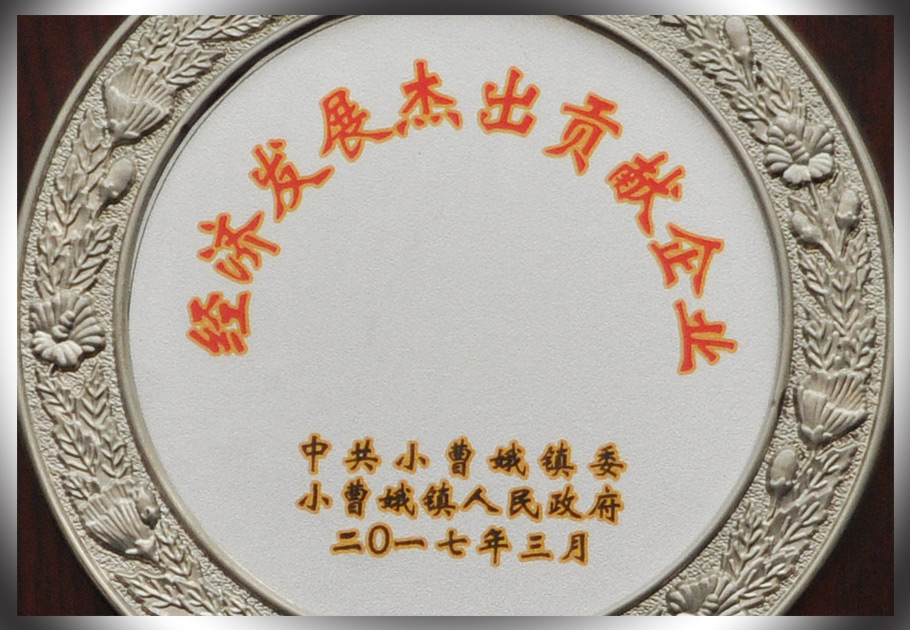 经济发展杰出贡献企业
中共小曹娥镇委
小曹娥镇人民政府
二〇一七年三月